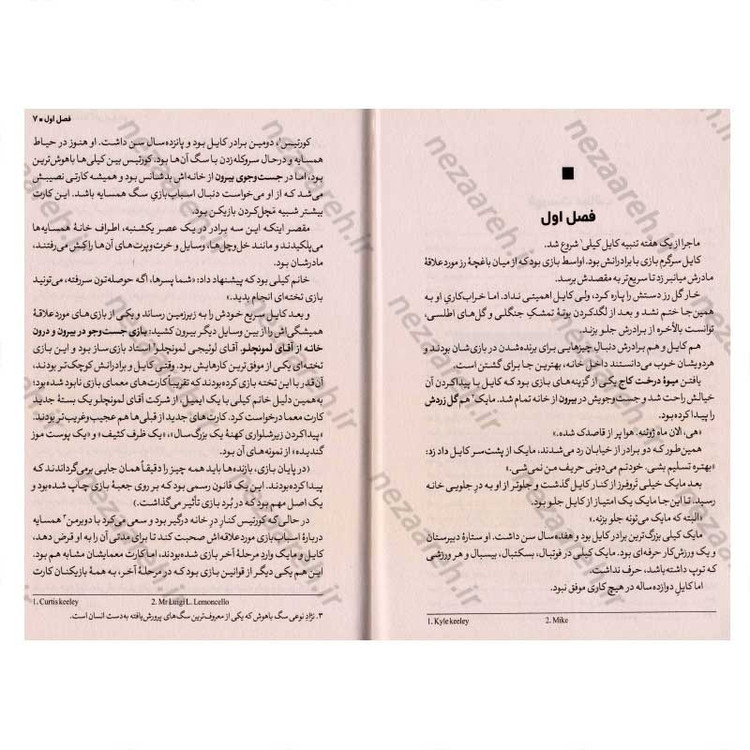 فصل اول
ماجرا از یک هفته تنبیه کایل کیلی۱ شروع شد.
کایل سرگرم بازی با برادرانش بود. اواسط بازی بود که از میان باغچهٔ رز مورد علاقهٔ
مادرش میانبر زد تا سریع‌تر به مقصدش برسد.
خار گل رز دستش را پاره کرد، ولی کایل اهمیتی نداد. اما خراب‌کاری او به
همین‌جا ختم نشد و بعد از لگدکردن بوتهٔ تمشکِ جنگلی و گل‌های اطلسی،
توانست بالأخره از برادرش جلو بزند.
هم کایل و هم برادرش دنبال چیزهایی برای برنده‌شدن در بازی‌شان بودند و
هردویشان خوب می‌دانستند داخل خانه، بهترین جا برای گشتن است.
یافتن میوهٔ درخت کاج یکی از گزینه‌های بازی بود که کایل با پیداکردن آن
خیالش راحت شد و جست‌وجویش در بیرون از خانه تمام شد. مایک۲ هم گل زردش
را پیدا کرده بود.
«هی، الان ماه ژوئنه. هوا پر از قاصدک شده.»
همین‌طور که دو برادر از خیابان رد می‌شدند، مایک از پشت‌سر کایل داد زد:
«بهتره تسلیم بشی. خودتم می‌دونی حریف من نمی‌شی.»
بعد مایک خیلی تروفرز از کنار کایل گذشت و جلوتر از او به درِ جلویی خانه
رسید. تا این‌جا مایک یک امتیاز از کایل جلو بود.
«البته که مایک می‌تونه جلو بزنه.»
مایک کیلی بزرگ‌ترین برادر کایل بود و هفده‌سال سن داشت. او ستارهٔ دبیرستان
و یک ورزش‌کار حرفه‌ای بود. مایک کیلی در فوتبال، بسکتبال، بیسبال و هر ورزشی
که توپ داشته باشد، حرف نداشت.
اما کایلِ دوازده‌ساله در هیچ کاری موفق نبود.
1. Kyle keeley 2. Mike
فصل اول ■ ۷
کورتیس۱، دومین برادر کایل بود و پانزده‌سال سن داشت. او هنوز در حیاط
همسایه و درحال سروکله‌زدن با سگ آن‌ها بود. کورتیس بین کیلی‌ها باهوش‌ترین
بود، اما در جست‌وجوی بیرون از خانه‌اش بدشانس بود و همیشه کارتی نصیبش
می‌شد که از او می‌خواست دنبال اسباب‌بازیِ سگ همسایه باشد. این کارت
بیشتر شبیه مَچل‌کردن بازیکن بود.
مقصر اینکه این سه برادر در یک عصر یکشنبه، اطراف خانهٔ همسایه‌ها
می‌پلکیدند و مانند خل‌وچل‌ها، وسایل و خرت‌وپرت‌های آن‌ها را کِش می‌رفتند،
مادرشان بود.
خانم کیلی بود که پیشنهاد داد: «شما پسرها، اگه حوصله‌تون سررفته، می‌تونید
بازی تخته‌ای انجام بدید.»
و بعد کایل سریع خودش را به زیرزمین رساند و یکی از بازی‌های موردعلاقهٔ
همیشگی‌اش را از بین وسایل دیگر بیرون کشید: بازی جست‌وجو در بیرون و درون
خانه از آقای لمونچلو. آقای لوئیجی لمونچلو۲ استاد بازی‌ساز بود و این بازی
تخته‌ای یکی از موفق‌ترین کارهایش بود. وقتی کایل و برادرانش کوچک‌تر بودند،
آن‌قدر با این تخته بازی کرده بودند که تقریباً کارت‌های معمای بازی نابود شده بود؛
به‌همین دلیل خانم کیلی با یک ایمیل، از شرکت آقای لمونچلو یک بستهٔ جدید
کارت معما درخواست کرد. کارت‌های جدید از قبلی‌ها هم عجیب‌وغریب‌تر بودند.
«پیداکردن زیرشلواری کهنهٔ یک بزرگ‌سال»، «یک ظرف کثیف» و «یک پوست موز
گندیده» از نمونه‌های آن بود.
(در پایان بازی، بازنده‌ها باید همه چیز را دقیقاً همان جایی برمی‌گرداندند که
پیدا کرده‌بودند. این یک قانون رسمی بود که بر روی جعبهٔ بازی چاپ شده بود و
یک اصل مهم بود که در بُرد بازی تأثیر می‌گذاشت.)
در حالی که کورتیس کنارِ درِ خانه درگیر بود و سعی می‌کرد با دوبرمن۳ همسایه
دربارهٔ اسباب‌بازی موردعلاقه‌اش صحبت کند تا برای مدتی آن را به او قرض دهد،
کایل و مایک وارد مرحلهٔ آخر بازی شده بودند، اما کارت معمایشان مشابه هم بود.
این هم یکی دیگر از قوانین بازی بود که در مرحلهٔ آخر، به همهٔ بازیکنان کارت
1. Curtis keeley 2. Mr Luigi L. Lemoncello
۳. نژادِ نوعی سگ باهوش که یکی از معروف‌ترین سگ‌های پرورش‌یافته به‌دست انسان است.
nezaareh.ir
nezaareh.ir
nezaareh.ir
nezaareh.ir
nezaareh.ir
nezaareh.ir
nezaareh.ir